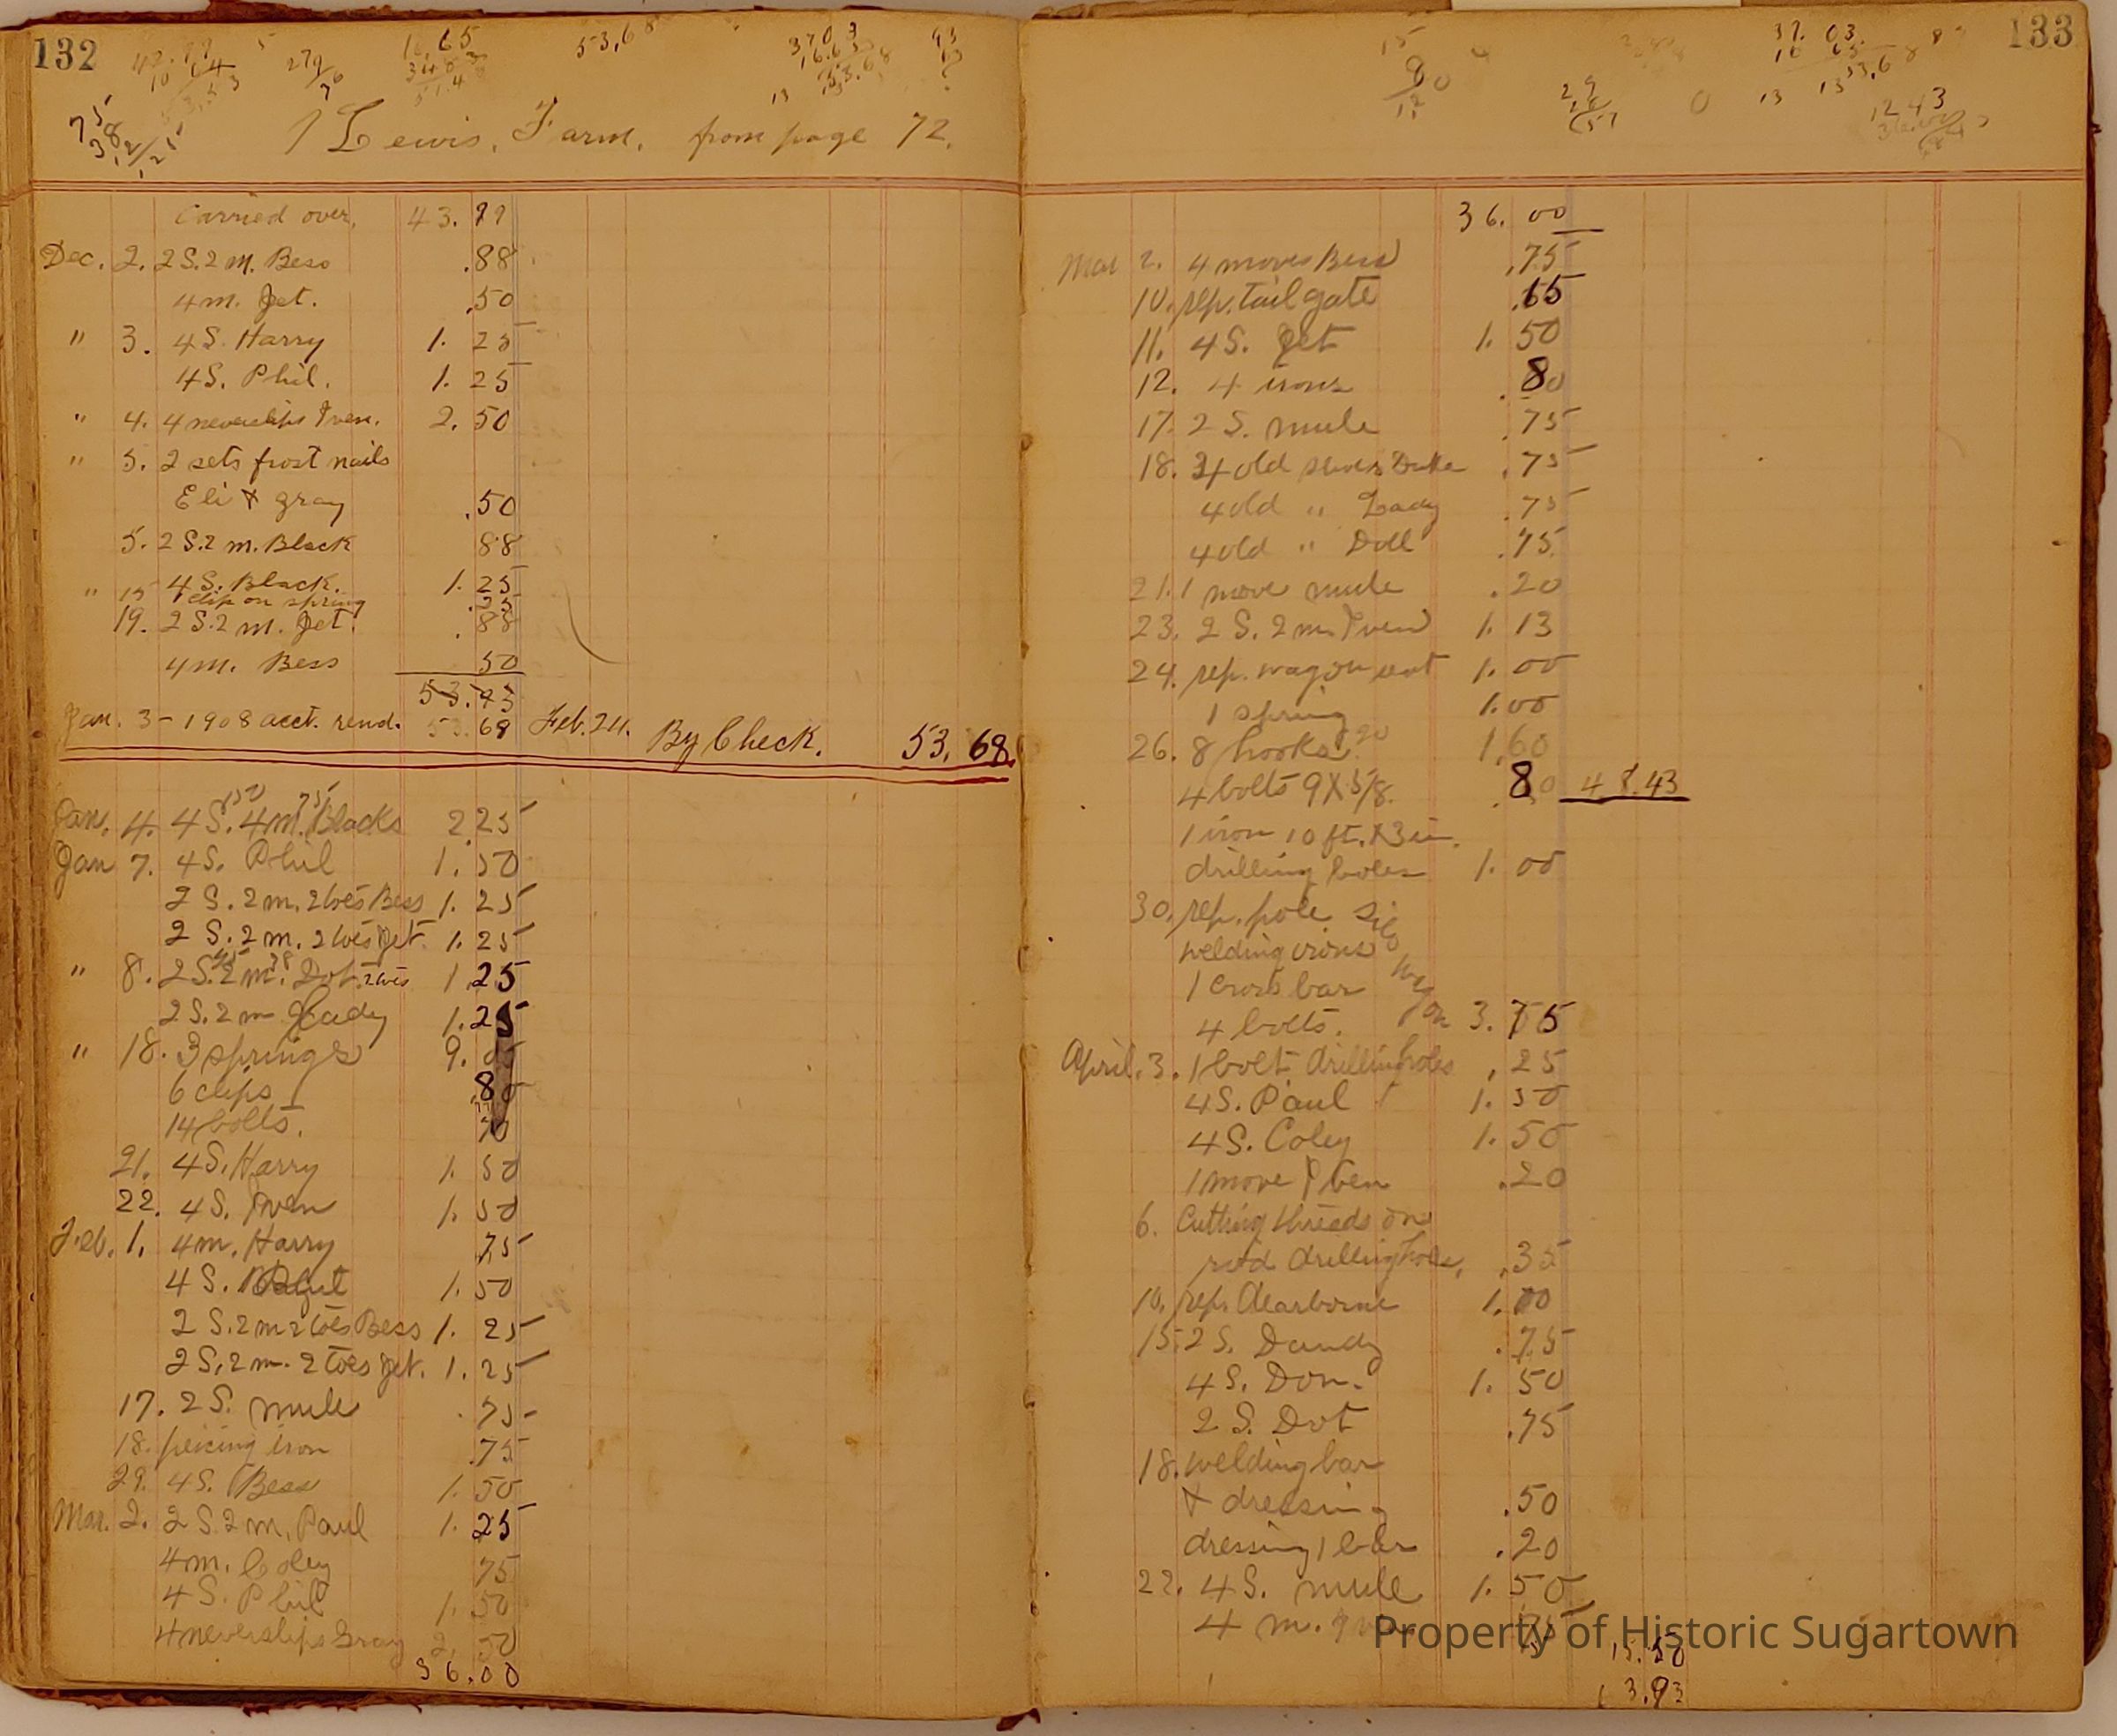 132
53,68
75
38
12
1 Lewis, Farm, from page 72.
Carried over, 43.77
Dec. 2. 2 S. 2 m. Bess .88
4 m. Jet. .50
" 3. 4 S. Harry 1.25
4 S. Phil. 1.25
" 4. 4 neverslips Iven. 2.50
" 5. 2 sets frost nails
Eli & gray .50
5. 2 S. 2 m. Black 88
" 15 4 S. Black. 1.25
1 clip on spring .25
19. 2 S. 2 m. Jet. .88
4 m. Bess 50
53.93
Jan. 3 - 1908 acct. rend. 53.68 Feb. 24. By Check. 53.68
Jan. 4. 4 S. 4 m. Blacks 2.25
Jan 7. 4 S. Phil 1.50
2 S. 2 m. 2 toes Bess 1.25
2 S. 2 m. 2 toes Jet. 1.25
" 8. 2 S. 2 m. Dot. 2 toes 1.25
2 S. 2 m Lady 1.25
" 18. 3 springs 9.00
6 clips .80
14 bolts. 70
21. 4 S. Harry 1.50
22. 4 S. Iven 1.50
Feb. 1. 4 m. Harry .75
4 S. 1.50
2 S. 2 m 2 toes Bess 1.25
2 S, 2 m. 2 toes Jet. 1.25
17. 2 S. mule .75
18. peicing iron .75
29. 4 S. Bess 1.50
Mar. 2. 2 S. 2 m. Paul 1.25
4 m. Coley 75
4 S. Phil 1.50
4 neverslips Gray 2.50
36.00
133
36.00
Mar 2. 4 moves Bess .75
10. rep. tail gate .65
11. 4 S. Jet 1.50
12. 4 irons .80
17. 2 S. mule .75
18. 4 old shoes Duke .75
4 old " Lady .75
4 old " Doll .75
21. 1 move mule .20
23. 2 S. 2 m. Iven 1.13
24. rep. wagon seat 1.00
1 spring 1.00
26. 8 hooks 20 1.60
4 bolts 9 X 5/8. .80 48.43
1 iron 10 ft. X 3 in.
drilling holes 1.00
30. rep. pole
welding irons
1 cross bar wagon
4 bolts. 3.75
April. 3. 1 bolt drilling holes .25
4 S. Paul 1.50
4 S. Coley 1.50
1 move Iven .20
6. Cutting threads on
rod drilling hole, .35
10. rep. Dearborne 1.00
15. 2 S. Dandy .75
4 S. Don. 1.50
2 S. Dot .75
18. welding bar
& dressing .50
dressing 1 bar .20
22. 4 S. mule 1.50
4 m. 75
15.50
63.93
Property of Historic Sugartown